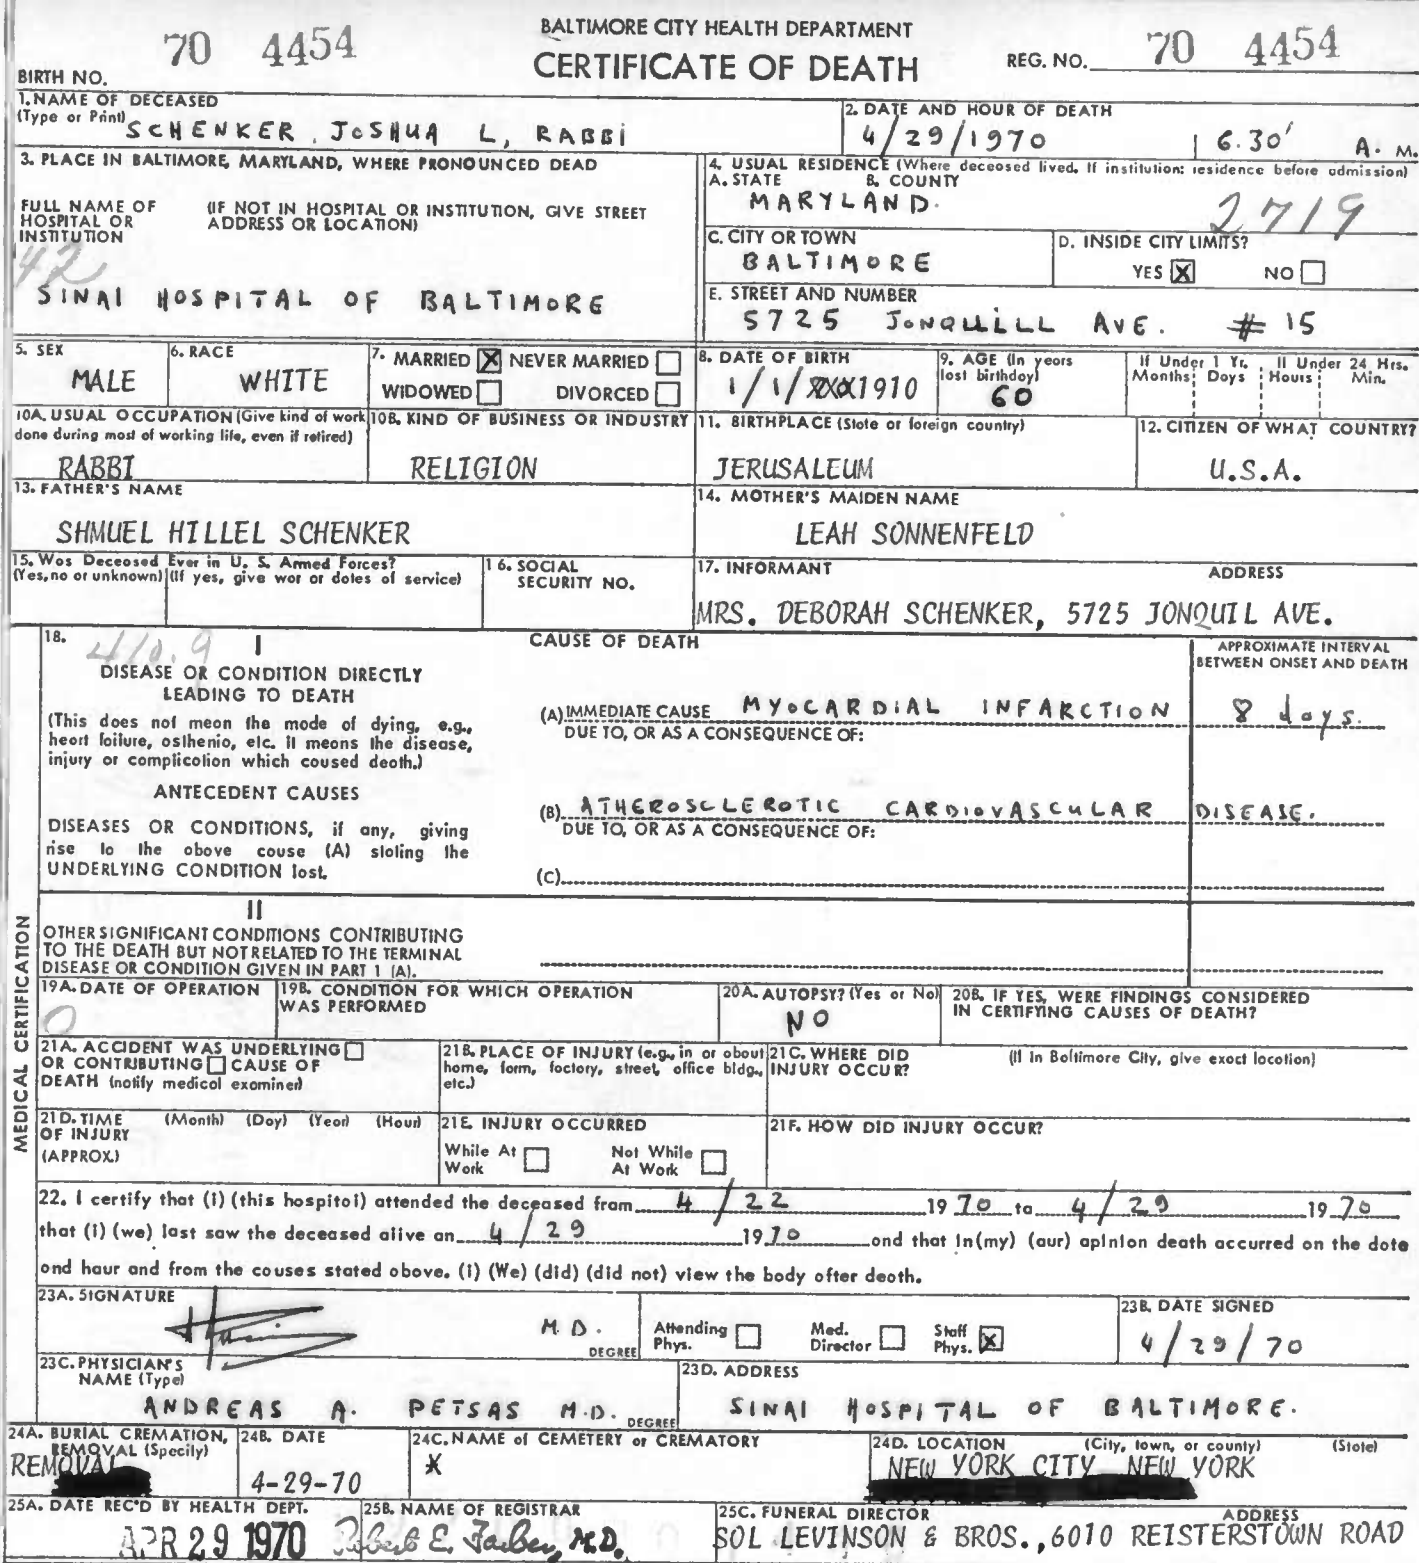 BALTIMORE CITY HEALTH DEPARTMENT
CERTIFICATE OF DEATH
BIRTH NO. 70 4454
REG. NO. 70 4454
1. NAME OF DECEASED
(Type or Print) SCHENKER, JOSHUA L, RABBI
2. DATE AND HOUR OF DEATH
4/29/1970 6.30' A. M.
3. PLACE IN BALTIMORE, MARYLAND, WHERE PRONOUNCED DEAD
FULL NAME OF HOSPITAL OR INSTITUTION
(IF NOT IN HOSPITAL OR INSTITUTION, GIVE STREET ADDRESS OR LOCATION)
42
SINAI HOSPITAL OF BALTIMORE
4. USUAL RESIDENCE (Where deceased lived. If institution: residence before admission)
A. STATE B. COUNTY
MARYLAND. 2719
C. CITY OR TOWN
BALTIMORE
D. INSIDE CITY LIMITS?
YES X NO
E. STREET AND NUMBER
5725 JONQUILL AVE. # 15
5. SEX
MALE
6. RACE
WHITE
7. MARRIED X NEVER MARRIED
WIDOWED DIVORCED
8. DATE OF BIRTH
1/1/1910
9. AGE (In years last birthday)
60
If Under 1 Yr. If Under 24 Hrs.
Months Days Hours Min.
10A. USUAL OCCUPATION (Give kind of work
done during most of working life, even if retired)
RABBI
10B. KIND OF BUSINESS OR INDUSTRY
RELIGION
11. BIRTHPLACE (State or foreign country)
JERUSALEUM
12. CITIZEN OF WHAT COUNTRY?
U.S.A.
13. FATHER'S NAME
SHMUEL HILLEL SCHENKER
14. MOTHER'S MAIDEN NAME
LEAH SONNENFELD
15. Was Deceased Ever in U. S. Armed Forces?
(Yes, no or unknown) (If yes, give war or dates of service)
16. SOCIAL SECURITY NO.
17. INFORMANT ADDRESS
MRS. DEBORAH SCHENKER, 5725 JONQUIL AVE.
MEDICAL CERTIFICATION
18. 410.9
I
DISEASE OR CONDITION DIRECTLY
LEADING TO DEATH
(This does not mean the mode of dying, e.g.,
heart failure, asthenia, etc. It means the disease,
injury or complication which caused death.)
ANTECEDENT CAUSES
DISEASES OR CONDITIONS, if any, giving
rise to the above cause (A) stating the
UNDERLYING CONDITION last.
CAUSE OF DEATH
APPROXIMATE INTERVAL
BETWEEN ONSET AND DEATH
(A) IMMEDIATE CAUSE MYOCARDIAL INFARCTION 8 days.
DUE TO, OR AS A CONSEQUENCE OF:
(B) ATHEROSCLEROTIC CARDIOVASCULAR DISEASE.
DUE TO, OR AS A CONSEQUENCE OF:
(C)
II
OTHER SIGNIFICANT CONDITIONS CONTRIBUTING
TO THE DEATH BUT NOT RELATED TO THE TERMINAL
DISEASE OR CONDITION GIVEN IN PART 1 (A).
19A. DATE OF OPERATION
0
19B. CONDITION FOR WHICH OPERATION
WAS PERFORMED
20A. AUTOPSY? (Yes or No)
NO
20B. IF YES, WERE FINDINGS CONSIDERED
IN CERTIFYING CAUSES OF DEATH?
21A. ACCIDENT WAS UNDERLYING
OR CONTRIBUTING CAUSE OF
DEATH (notify medical examiner)
21B. PLACE OF INJURY (e.g., in or about
home, farm, factory, street, office bldg.,
etc.)
21C. WHERE DID
INJURY OCCUR?
(If in Baltimore City, give exact location)
21D. TIME OF INJURY (APPROX.)
(Month) (Day) (Year) (Hour)
21E. INJURY OCCURRED
While At Work Not While At Work
21F. HOW DID INJURY OCCUR?
22. I certify that (I) (this hospital) attended the deceased from 4/22 1970 to 4/29 1970
that (I) (we) last saw the deceased alive on 4/29 1970 and that in (my) (our) opinion death occurred on the date
and hour and from the causes stated above. (I) (We) (did) (did not) view the body after death.
23A. SIGNATURE
M.D. DEGREE
Attending Phys. Med. Director Staff Phys. X
23B. DATE SIGNED
4/29/70
23C. PHYSICIAN'S NAME (Type)
ANDREAS A. PETSAS M.D. DEGREE
23D. ADDRESS
SINAI HOSPITAL OF BALTIMORE.
24A. BURIAL CREMATION,
REMOVAL (Specify)
REMOVAL
24B. DATE
4-29-70
24C. NAME of CEMETERY or CREMATORY
X
24D. LOCATION (City, town, or county) (State)
NEW YORK CITY NEW YORK
25A. DATE REC'D BY HEALTH DEPT.
APR 29 1970
25B. NAME OF REGISTRAR
Robert E. Farber, M.D.
25C. FUNERAL DIRECTOR ADDRESS
SOL LEVINSON & BROS., 6010 REISTERSTOWN ROAD